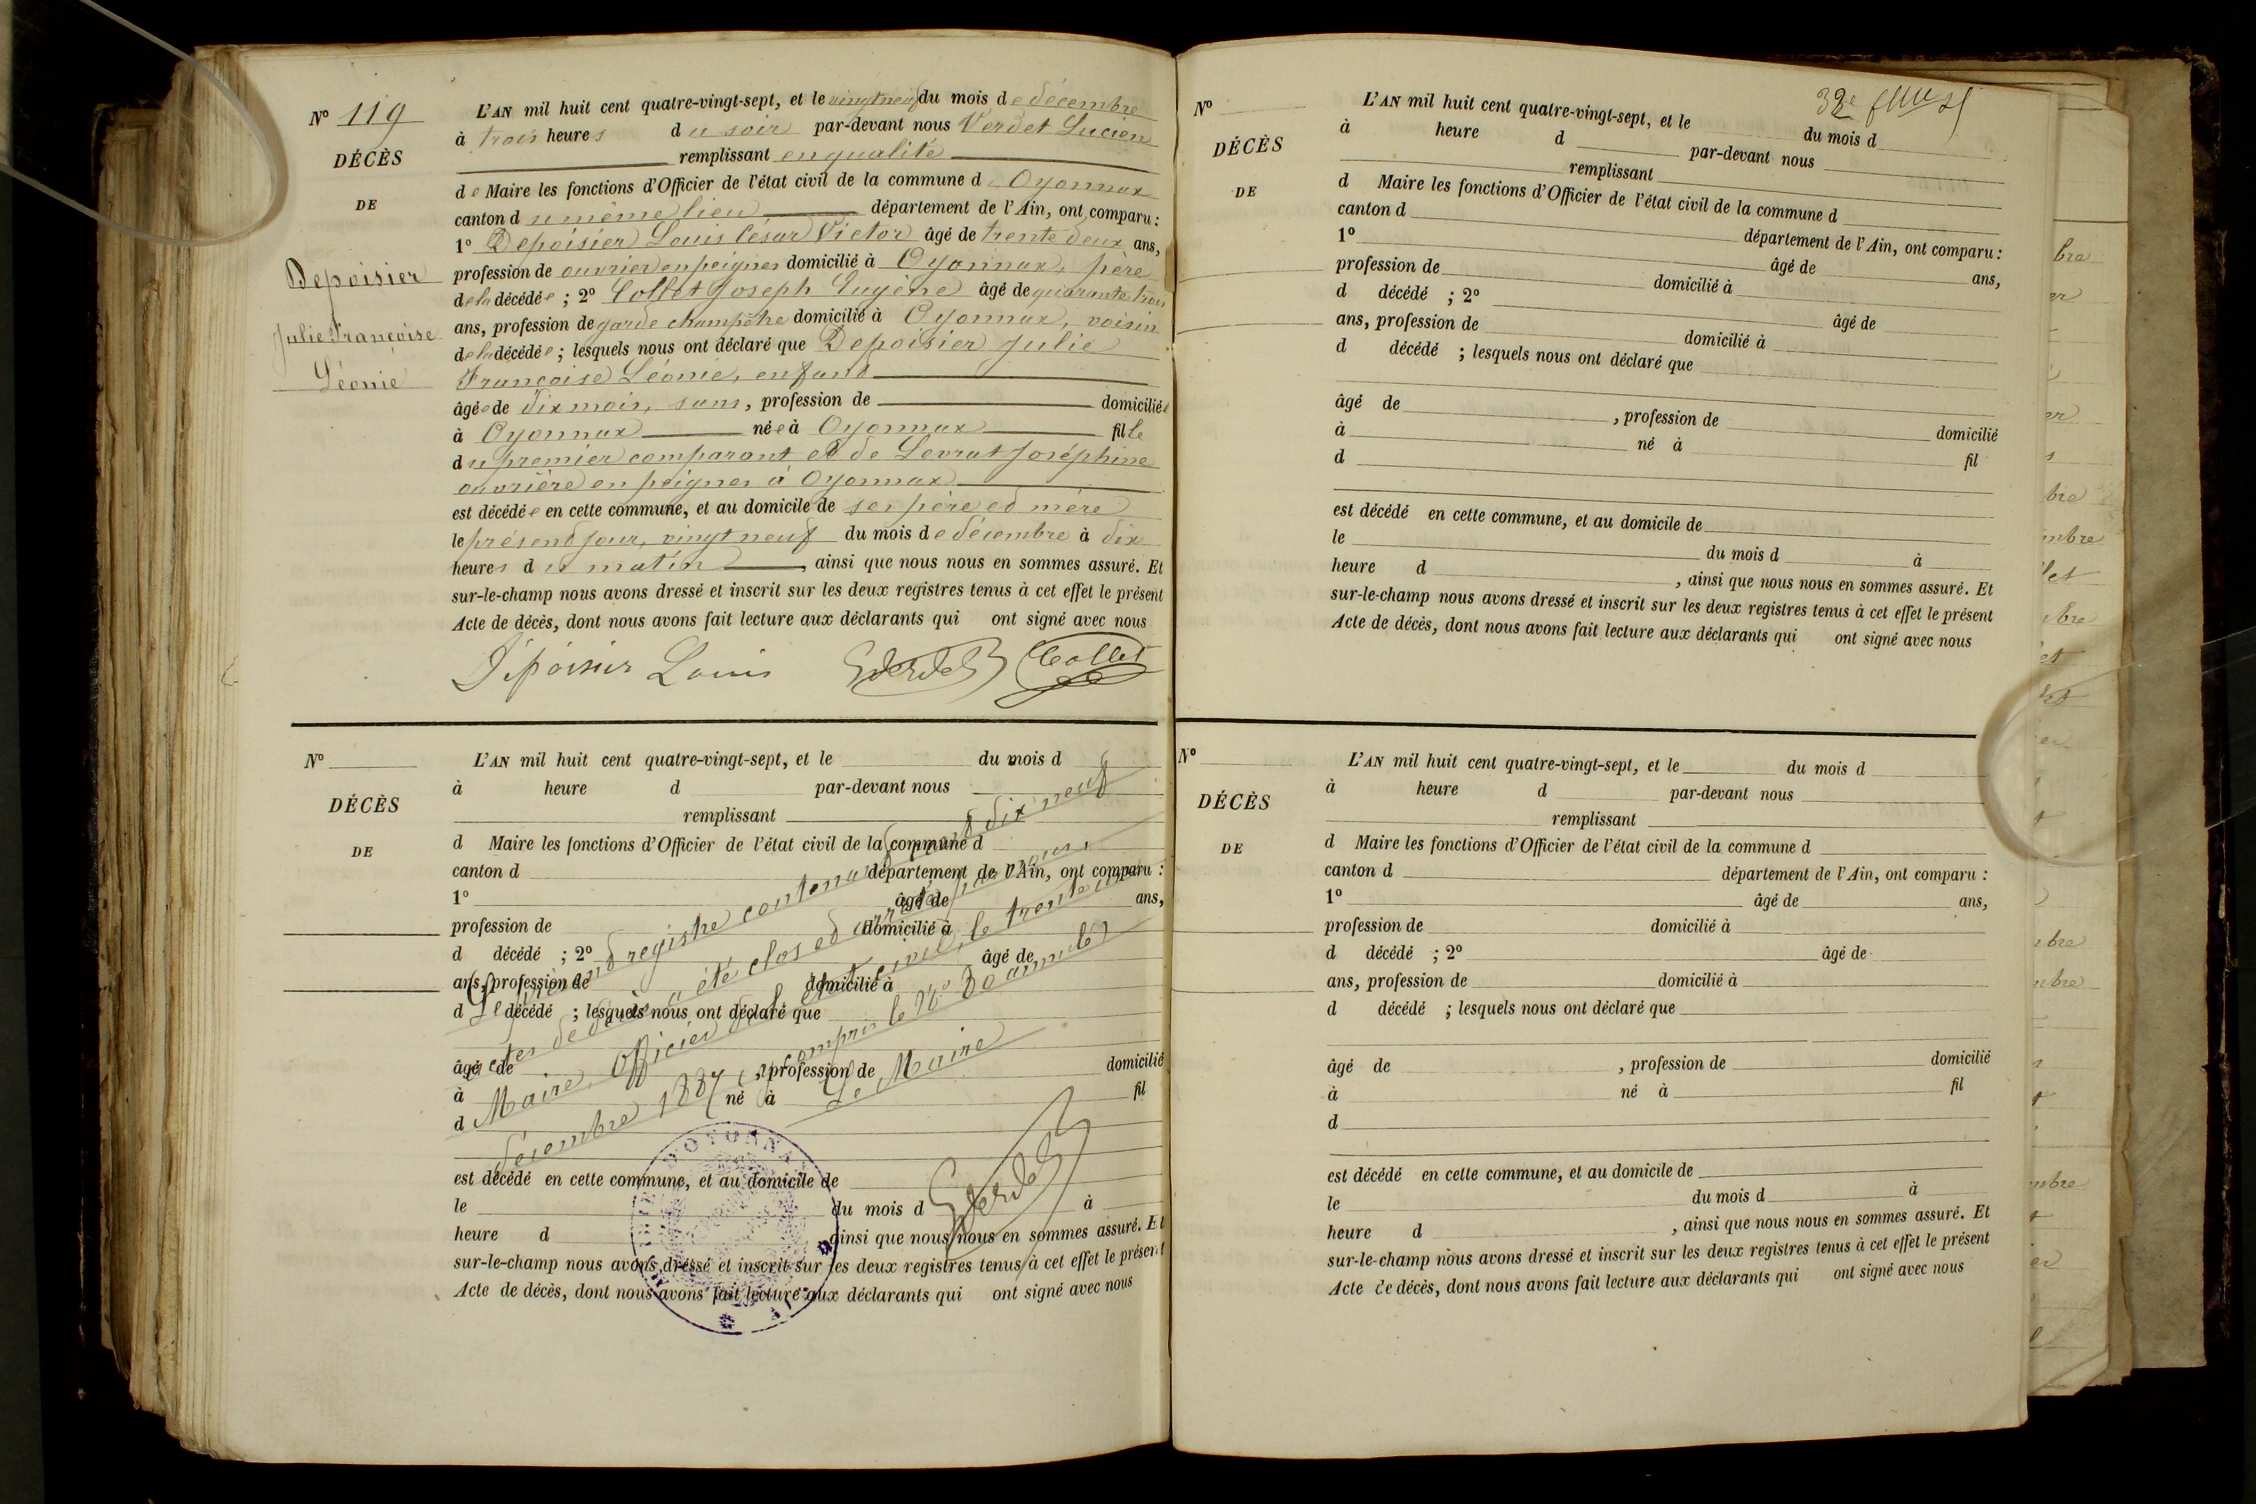 N° 119
DÉCÈS
DE
Depoisier
Julie Françoise
Léonie
L'AN mil huit cent quatre-vingt-sept, et le vingt neuf du mois de décembre
à trois heures du soir par-devant nous Verdet Lucien
remplissant en qualité
de Maire les fonctions d'Officier de l'état civil de la commune d Oyonnax
canton du même lieu département de l'Ain, ont comparu :
1° Depoisier Louis César Victor âgé de trente deux ans,
profession de ouvrier en peignes domicilié à Oyonnax, père
de la décédée ; 2° Collet Joseph Eugène âgé de quarante trois
ans, profession de garde champêtre domicilié à Oyonnax, voisin
de la décédée ; lesquels nous ont déclaré que Depoisier Julie
Françoise Léonie, enfant
âgée de dix mois, sans, profession de domiciliée
à Oyonnax née à Oyonnax fille
du premier comparant et de Levrat Joséphine
ouvrière en peignes à Oyonnax
est décédée en cette commune, et au domicile de ses père et mère
le présent jour, vingt neuf du mois de décembre à dix
heures du matin, ainsi que nous nous en sommes assuré. Et
sur-le-champ nous avons dressé et inscrit sur les deux registres tenus à cet effet le présent
Acte de décès, dont nous avons fait lecture aux déclarants qui ont signé avec nous
Dépoisier Louis Verdet Collet
N°
DÉCÈS
DE
L'AN mil huit cent quatre-vingt-sept, et le du mois d
à heure d par-devant nous
remplissant
d Maire les fonctions d'Officier de l'état civil de la commune d
canton d département de l'Ain, ont comparu :
1° âgé de ans,
profession de domicilié à
d décédé ; 2° âgé de
ans, profession de domicilié à
d décédé ; lesquels nous ont déclaré que
âgé de , profession de domicilié
à né à fil
d
est décédé en cette commune, et au domicile de
le du mois d à
heure d ainsi que nous nous en sommes assuré. Et
sur-le-champ nous avons dressé et inscrit sur les deux registres tenus à cet effet le présent
Acte de décès, dont nous avons fait lecture aux déclarants qui ont signé avec nous
Le présent registre contenant cent dix neuf
actes de décès a été clos et arrêté par nous,
Maire, Officier de l'état civil, le trente un
décembre 1887 (y compris le N° 80 annulé)
Le Maire
Verdet
N°
DÉCÈS
DE
L'AN mil huit cent quatre-vingt-sept, et le du mois d
à heure d par-devant nous
remplissant
d Maire les fonctions d'Officier de l'état civil de la commune d
canton d département de l'Ain, ont comparu :
1° âgé de ans,
profession de domicilié à
d décédé ; 2° âgé de
ans, profession de domicilié à
d décédé ; lesquels nous ont déclaré que
âgé de , profession de domicilié
à né à
d fil
est décédé en cette commune, et au domicile de
le du mois d à
heure d , ainsi que nous nous en sommes assuré. Et
sur-le-champ nous avons dressé et inscrit sur les deux registres tenus à cet effet le présent
Acte de décès, dont nous avons fait lecture aux déclarants qui ont signé avec nous
N°
DÉCÈS
DE
L'AN mil huit cent quatre-vingt-sept, et le du mois d
à heure d par-devant nous
remplissant
d Maire les fonctions d'Officier de l'état civil de la commune d
canton d département de l'Ain, ont comparu :
1° âgé de ans,
profession de domicilié à
d décédé ; 2° âgé de
ans, profession de domicilié à
d décédé ; lesquels nous ont déclaré que
âgé de , profession de domicilié
à né à fil
d
est décédé en cette commune, et au domicile de
le du mois d à
heure d , ainsi que nous nous en sommes assuré. Et
sur-le-champ nous avons dressé et inscrit sur les deux registres tenus à cet effet le présent
Acte de décès, dont nous avons fait lecture aux déclarants qui ont signé avec nous